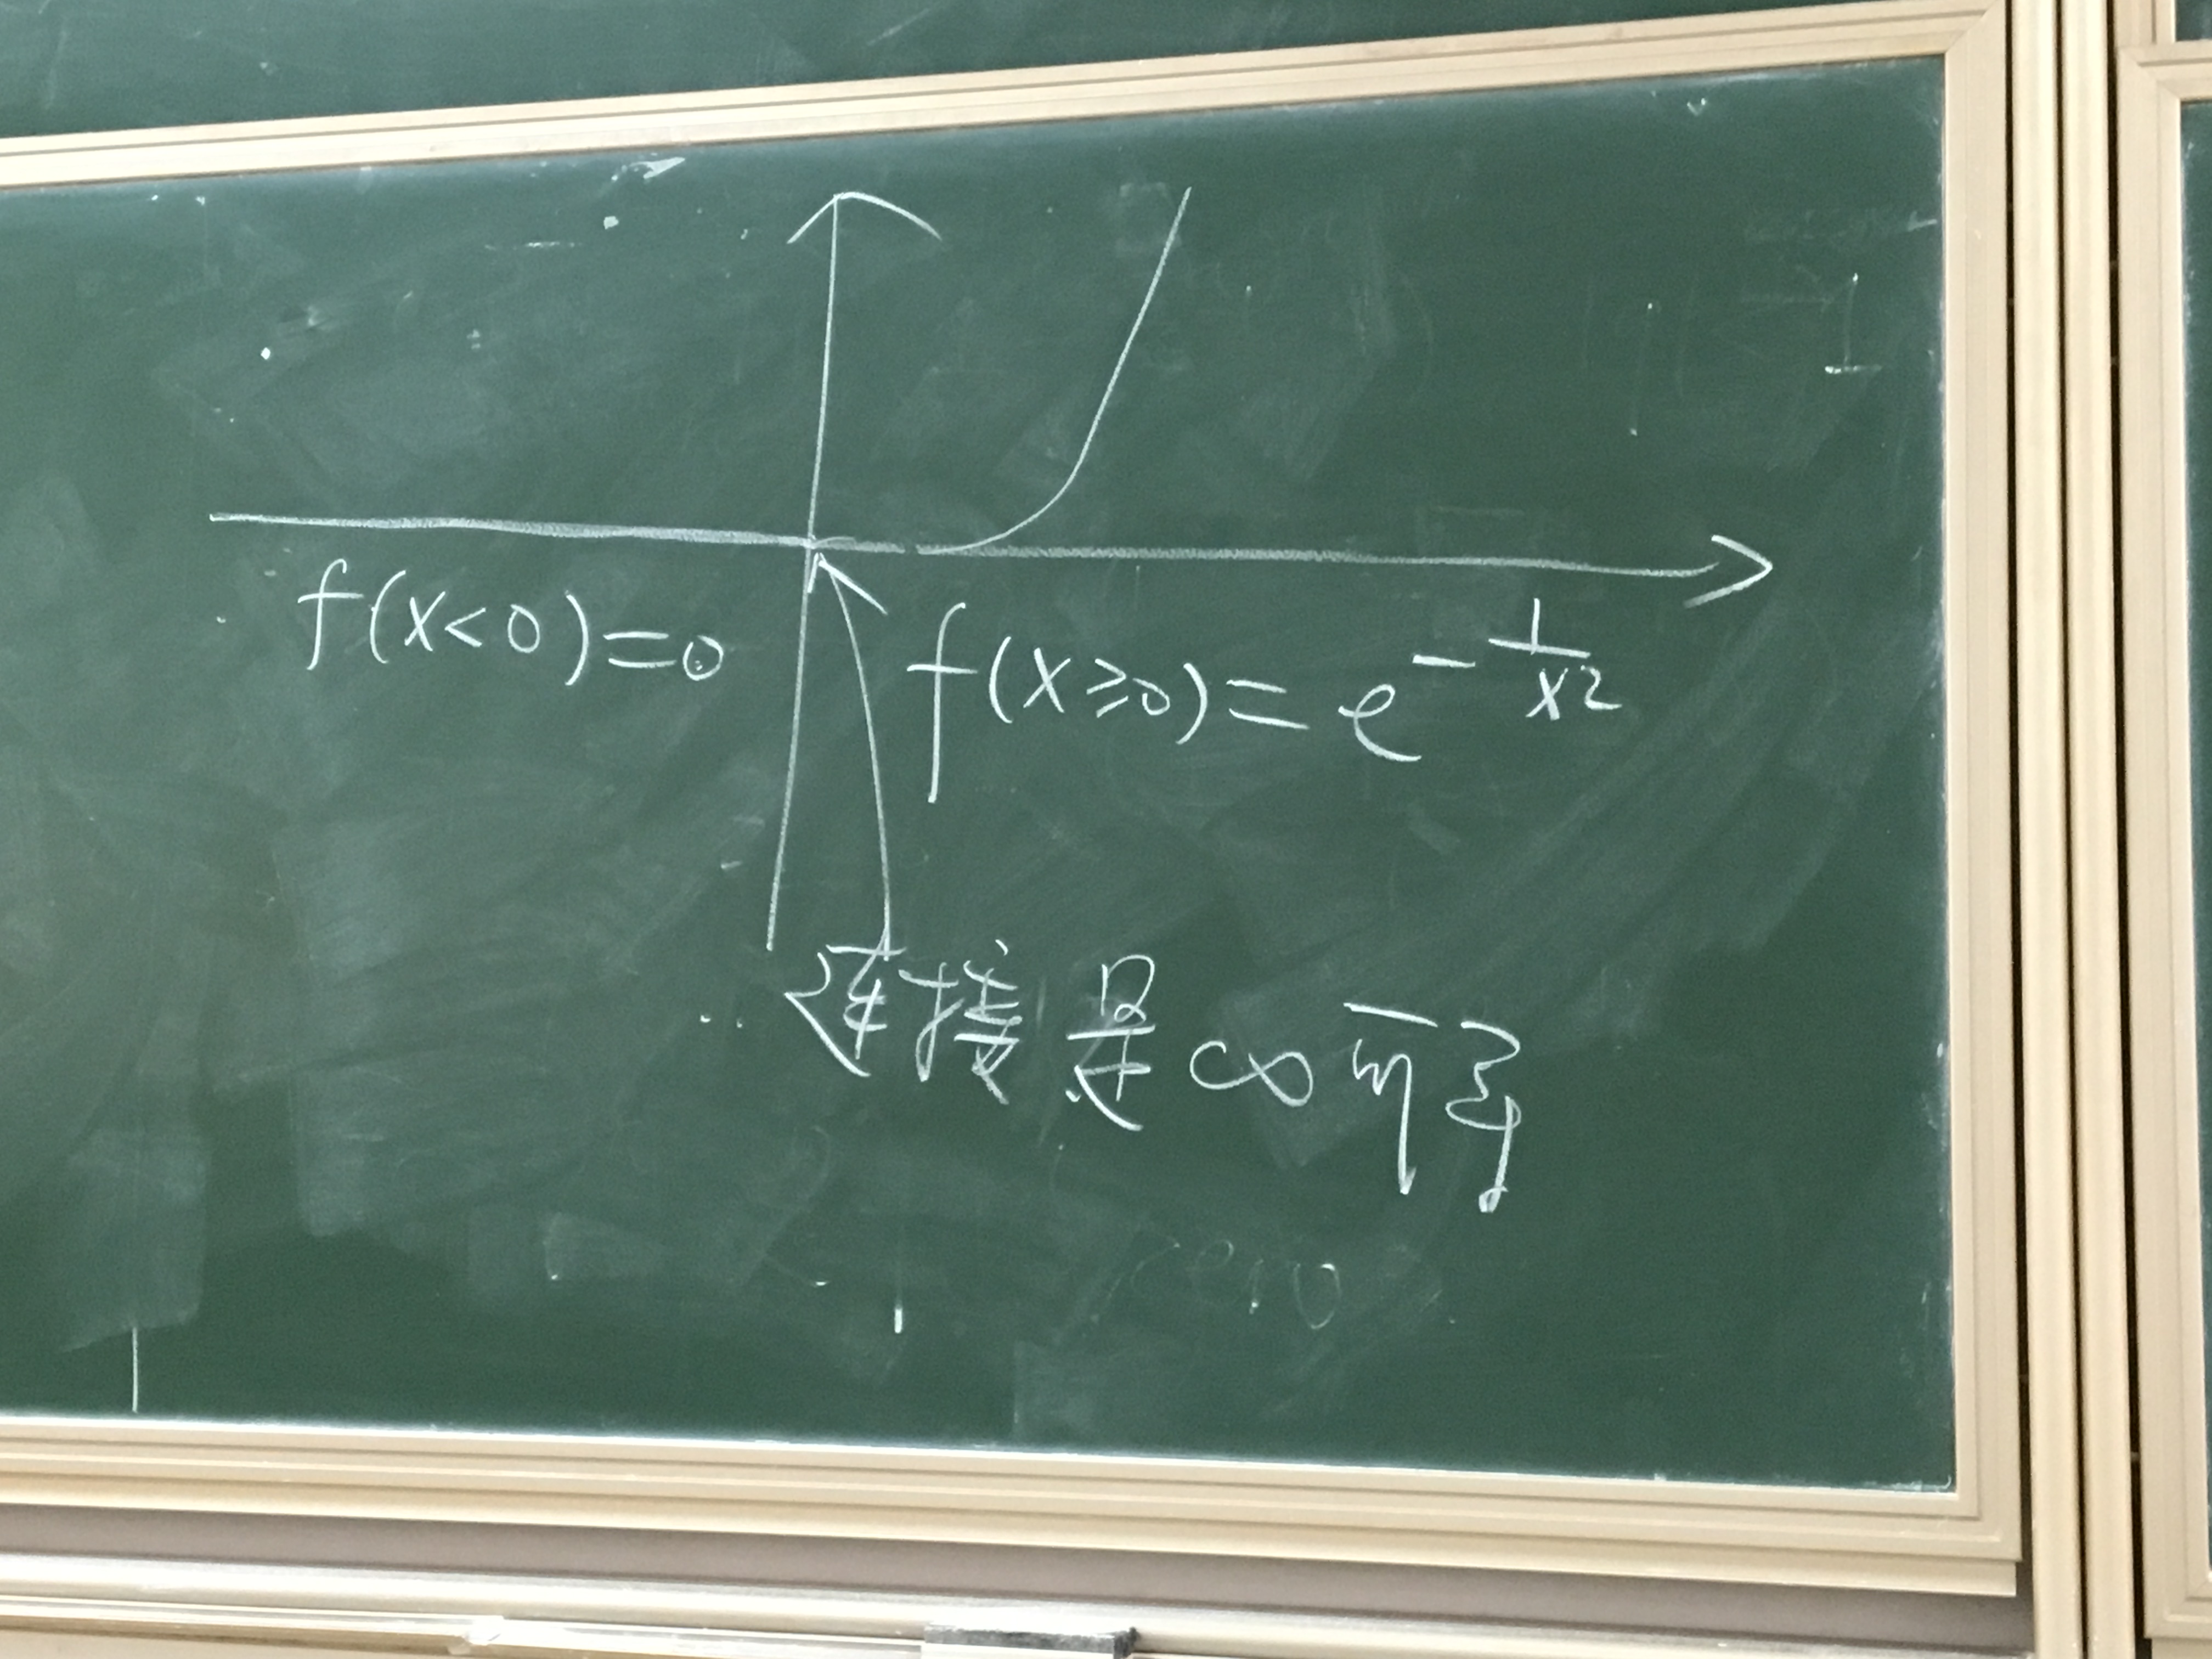 f(x<0)=0
f(x≥0)=e^{-\frac{1}{x^2}}
连接是∞可导